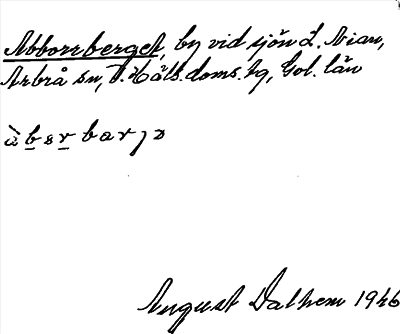 Abborrberget, by vid sjön L. Nian,
Arbrå sn, V. Häls. doms. tg, Gvl. län
August Dalhem 1946